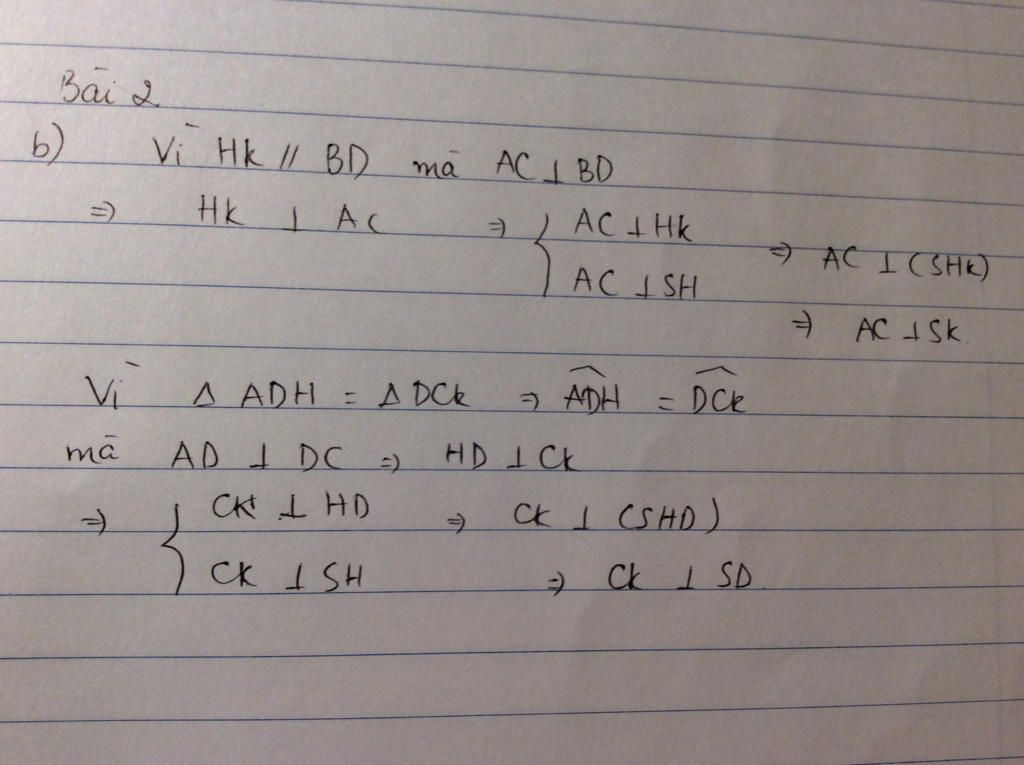 Bài 2
b) Vì Hk // BD mà AC ⊥ BD
=> Hk ⊥ AC => { AC ⊥ Hk => AC ⊥ (SHk)
AC ⊥ SH => AC ⊥ Sk.
Vì Δ ADH = Δ DCk => \widehat{ADH} = \widehat{DCk}
mà AD ⊥ DC => HD ⊥ Ck
=> { CK ⊥ HD => Ck ⊥ (SHD)
CK ⊥ SH => Ck ⊥ SD.